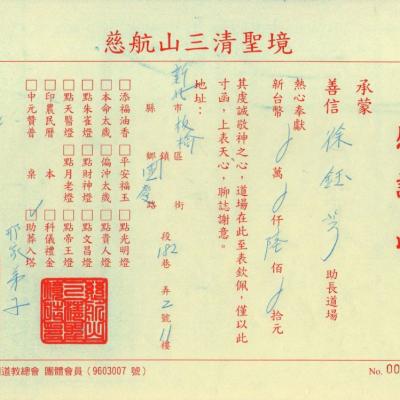 慈航山三清聖境
承蒙
善信 徐鈺芳 助長道場
熱心奉獻
新台幣 0 萬 0 仟 陸 佰 0 拾元
其虔誠敬神之心，道場在此至表欽佩，僅以此
寸函，上表天心，聊誌謝意。
地址：
新北 市 板橋 區 街
縣 鄉鎮 國慶 路 段 182 巷 弄 2 號 11 樓
□添福油香 □平安福玉 □點光明燈
□本命太歲 □偏沖太歲 □點貴人燈
□點朱雀燈 □點財神燈 □點文昌燈
□點天醫燈 □點月老燈 □點帝王燈
□印農民曆 本 □科儀禮金
□中元贊普 桌 ☑助葬入塔
弟子
慈航山三清聖境
道教總會 團體會員（9603007 號）
No. 00